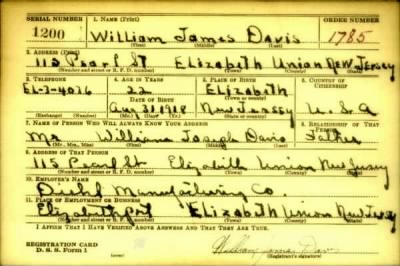 SERIAL NUMBER 1. NAME (Print) ORDER NUMBER
1200 William James Davis 1785
(First) (Middle) (Last)
2. ADDRESS (Print)
115 Pearl St Elizabeth Union New Jersey
(Number and street or R. F. D. number) (Town) (County) (State)
3. TELEPHONE 4. AGE IN YEARS 5. PLACE OF BIRTH 6. COUNTRY OF CITIZENSHIP
El-3-4076 22 Elizabeth
DATE OF BIRTH (Town or county)
Aug 31 1918 New Jersey U. S. A
(Exchange) (Number) (Mo.) (Day) (Yr.) (State or country)
7. NAME OF PERSON WHO WILL ALWAYS KNOW YOUR ADDRESS 8. RELATIONSHIP OF THAT PERSON
Mr. William Joseph Davis Father
(Mr., Mrs., Miss) (First) (Middle) (Last)
9. ADDRESS OF THAT PERSON
115 Pearl St Elizabeth Union New Jersey
(Number and street or R. F. D. number) (Town) (County) (State)
10. EMPLOYER'S NAME
Diehl Manufacturing Co
11. PLACE OF EMPLOYMENT OR BUSINESS
Elizabethport Elizabeth Union New Jersey
(Number and street or R. F. D. number) (Town) (County) (State)
I AFFIRM THAT I HAVE VERIFIED ABOVE ANSWERS AND THAT THEY ARE TRUE.
REGISTRATION CARD
D. S. S. Form 1 William James Davis
(Registrant's signature)